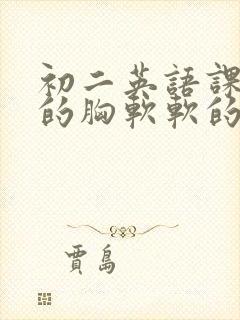 初二英語課
的胸軟軟的
賈島